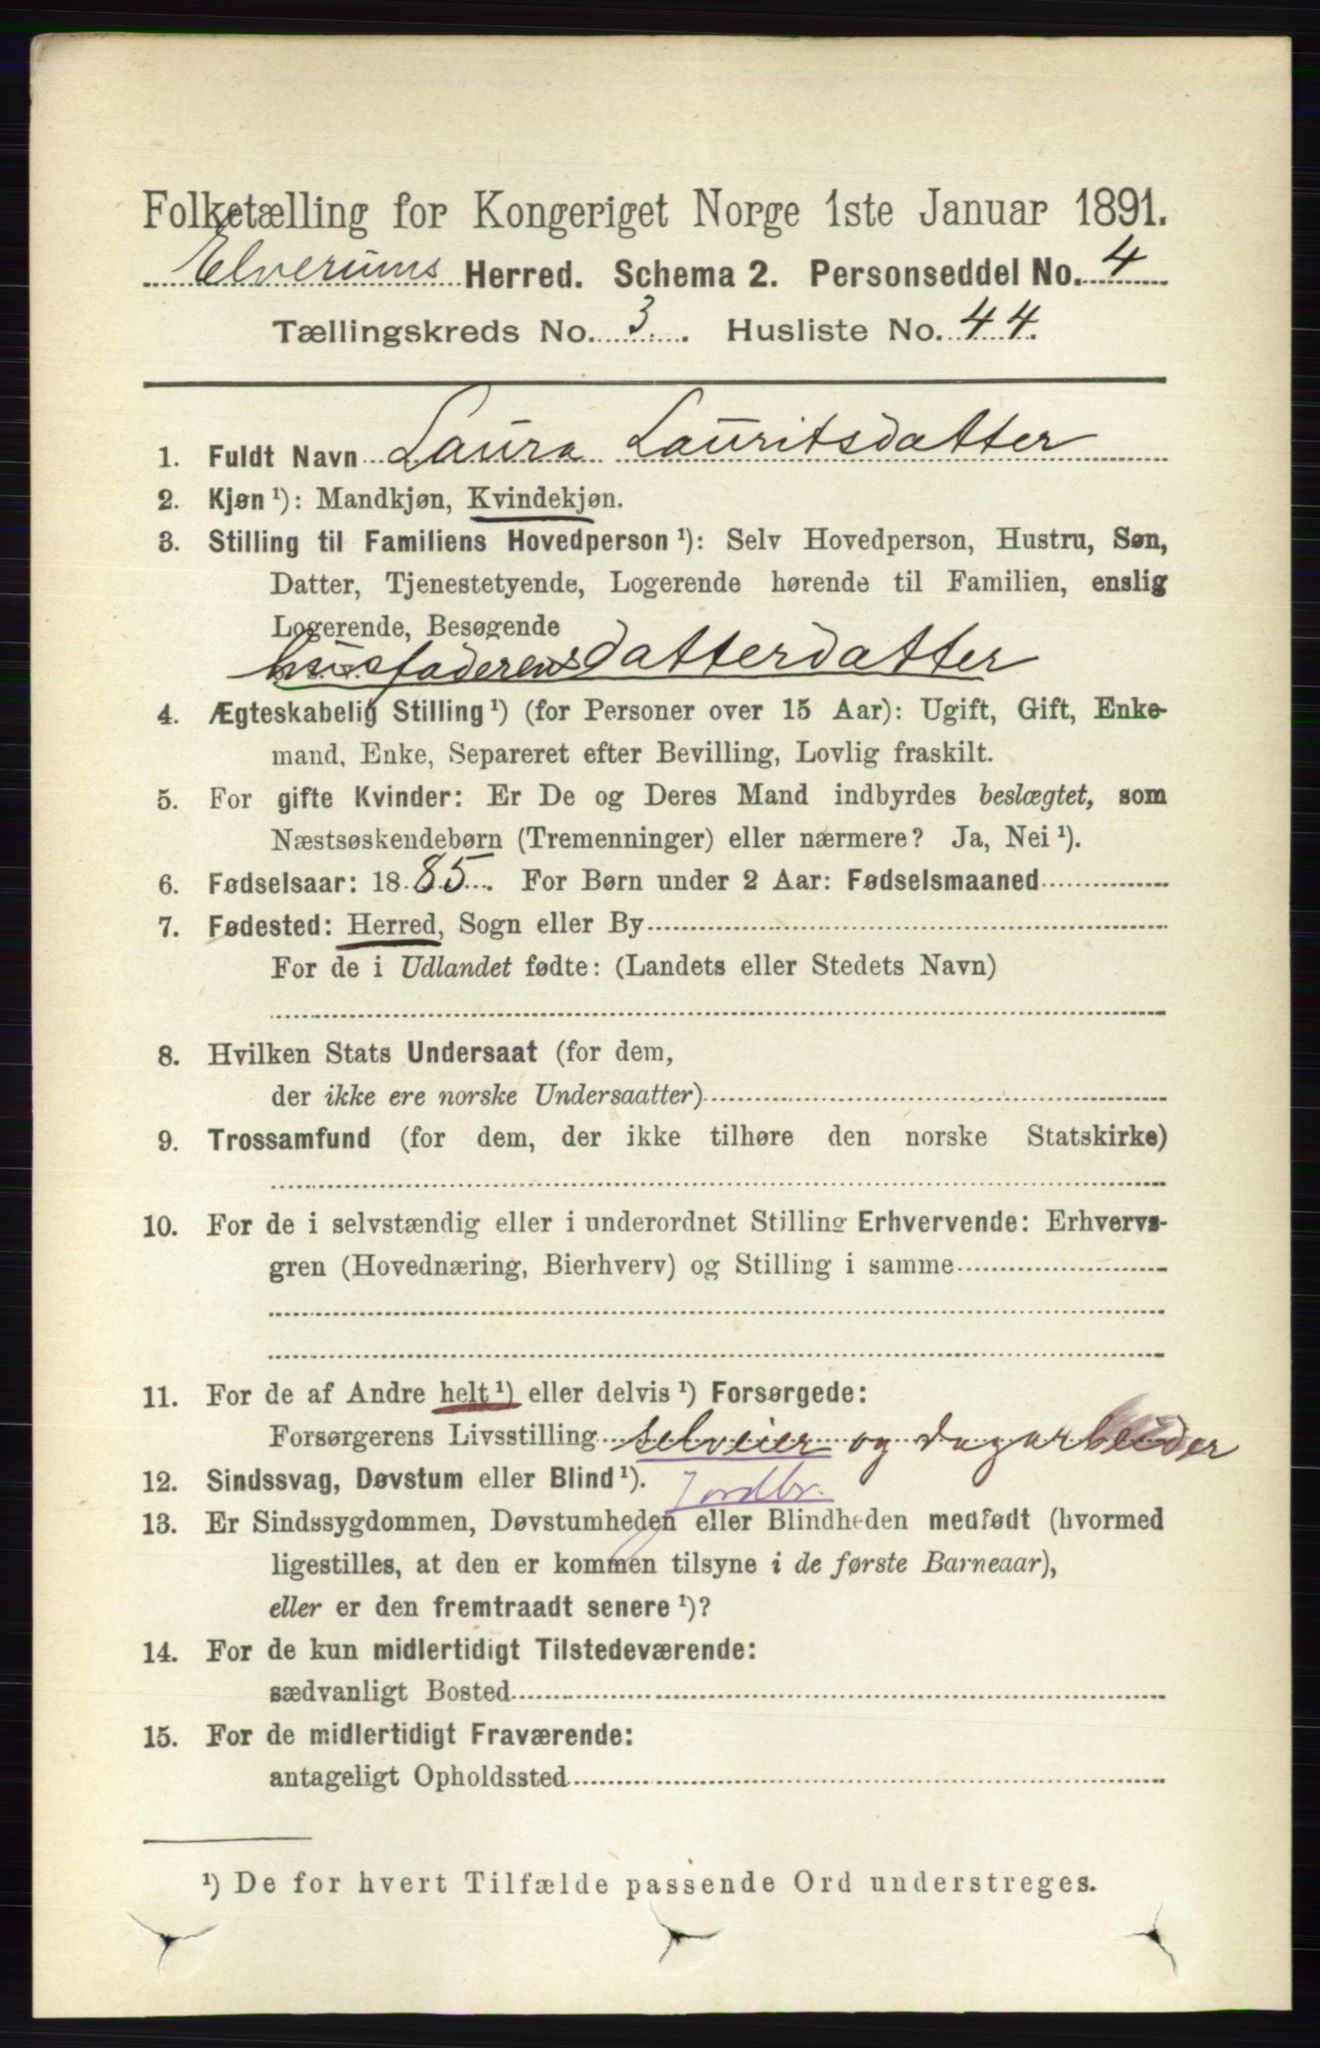 Folketælling for Kongeriget Norge 1ste Januar 1891.
Elverums Herred. Schema 2. Personseddel No. 4
Tællingskreds No. 3. Husliste No. 44.
1. Fuldt Navn Laura Lauritsdatter
2. Kjøn ¹): Mandkjøn, Kvindekjøn.
3. Stilling til Familiens Hovedperson ¹): Selv Hovedperson, Hustru, Søn,
Datter, Tjenestetyende, Logerende hørende til Familien, enslig
Logerende, Besøgende
husfaderens datterdatter
4. Ægteskabelig Stilling ¹) (for Personer over 15 Aar): Ugift, Gift, Enke-
mand, Enke, Separeret efter Bevilling, Lovlig fraskilt.
5. For gifte Kvinder: Er De og Deres Mand indbyrdes beslægtet, som
Næstsøskendebørn (Tremenninger) eller nærmere? Ja, Nei ¹).
6. Fødselsaar: 1885. For Børn under 2 Aar: Fødselsmaaned
7. Fødested: Herred, Sogn eller By
For de i Udlandet fødte: (Landets eller Stedets Navn)
8. Hvilken Stats Undersaat (for dem,
der ikke ere norske Undersaatter)
9. Trossamfund (for dem, der ikke tilhøre den norske Statskirke)
10. For de i selvstændig eller i underordnet Stilling Erhvervende: Erhvervs-
gren (Hovednæring, Bierhverv) og Stilling i samme
11. For de af Andre helt ¹) eller delvis ¹) Forsørgede:
Forsørgerens Livsstilling selveier og dagarbeider
12. Sindssvag, Døvstum eller Blind ¹). Jordbr.
13. Er Sindssygdommen, Døvstumheden eller Blindheden medfødt (hvormed
ligestilles, at den er kommen tilsyne i de første Barneaar),
eller er den fremtraadt senere ¹)?
14. For de kun midlertidigt Tilstedeværende:
sædvanligt Bosted
15. For de midlertidigt Fraværende:
antageligt Opholdssted
¹) De for hvert Tilfælde passende Ord understreges.